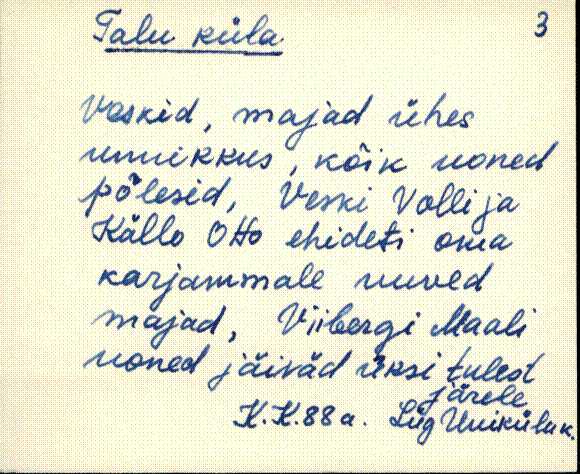 Talu küla 3
Veskid, majad ühes
unnikkus, kõik uoned
põlesid, Veski Volli ja
Källo Otto ehideti oma
karjammale uuved
majad, Viibergi Maali
uoned jäiväd üksi tulest
järele
K.K. 88 a. Lüg Uniküla k.